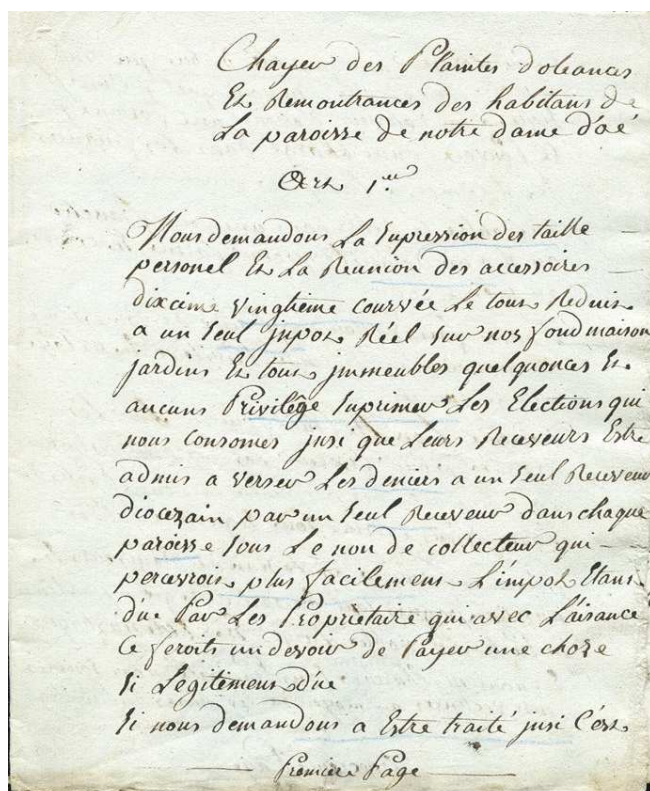 Chayer des Plaintes doleances
Et Remontrances des habitans de
La paroisse de notre dame d'oé
Art 1.er
Nous demandons La Supression des taille
personel Et La Reunion des accessoires
dixcime vingtieme courvée Le tout Reduit
a un Seul jmpot Réel Sur nos fond maison
jardins Et tout jmmeubles quelquonces Et
aucuns Privilêge Suprimer Les Elections qui
nous Consomes jnsi que Leurs Receveurs Estre
admis a verser Les deniers a un Seul Receveur
diocezain par un Seul Receveur dans chaque
paroisse Sous Le non de collecteur qui
percevroit plus facilement L'impot Etant
due Par Les Propriétaire qui avec L'aisance
Ce feroits un devoir de Payer une choze
Si Legitement düe
Si nous demandons a Estre traité jnsi C'est
Premiere Page